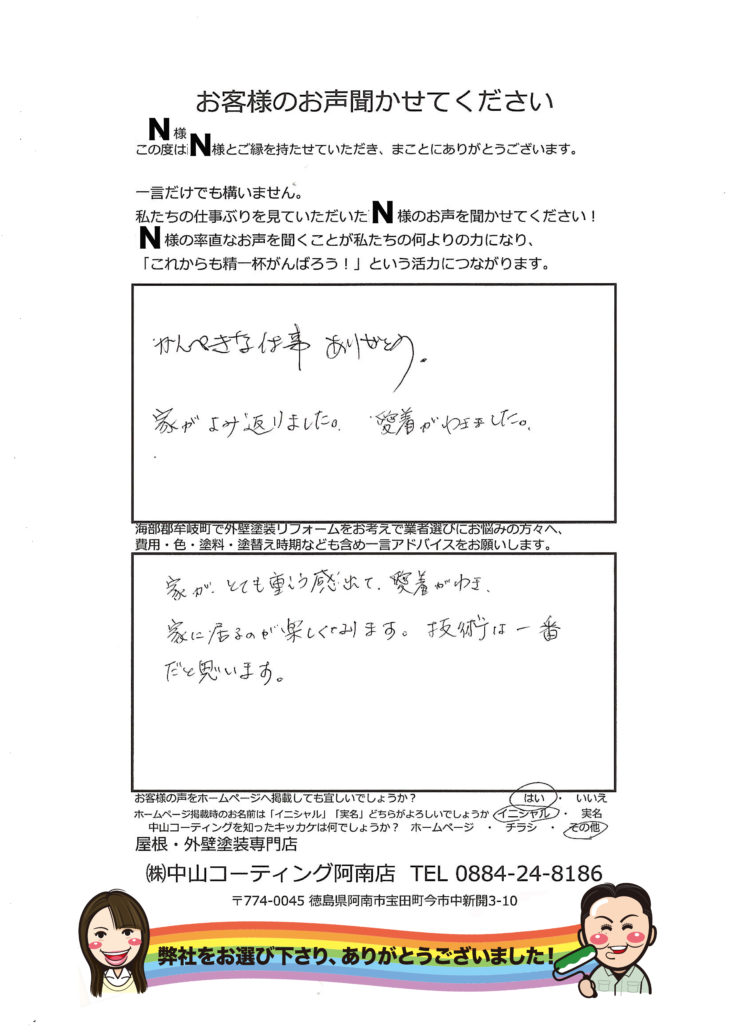 お客様のお声聞かせてください
N様
この度はN様とご縁を持たせていただき、まことにありがとうございます。
一言だけでも構いません。
私たちの仕事ぶりを見ていただいたN様のお声を聞かせてください！
N様の率直なお声を聞くことが私たちの何よりの力になり、
「これからも精一杯がんばろう！」という活力につながります。
かんぺきな仕事 ありがとう。
家がよみ返りました。 愛着がわきました。
海部郡牟岐町で外壁塗装リフォームをお考えで業者選びにお悩みの方々へ、
費用・色・塗料・塗替え時期なども含め一言アドバイスをお願いします。
家が、とても重こう感出て、愛着がわき、
家に居るのが楽しくなります。技術は一番
だと思います。
お客様の声をホームページへ掲載しても宜しいでしょうか？ はい ・ いいえ
ホームページ掲載時のお名前は「イニシャル」「実名」どちらがよろしいでしょうか イニシャル ・ 実名
中山コーティングを知ったキッカケは何でしょうか？ ホームページ ・ チラシ ・ その他
屋根・外壁塗装専門店
㈱中山コーティング阿南店 TEL 0884-24-8186
〒774-0045 徳島県阿南市宝田町今市中新開3-10
弊社をお選び下さり、ありがとうございました！